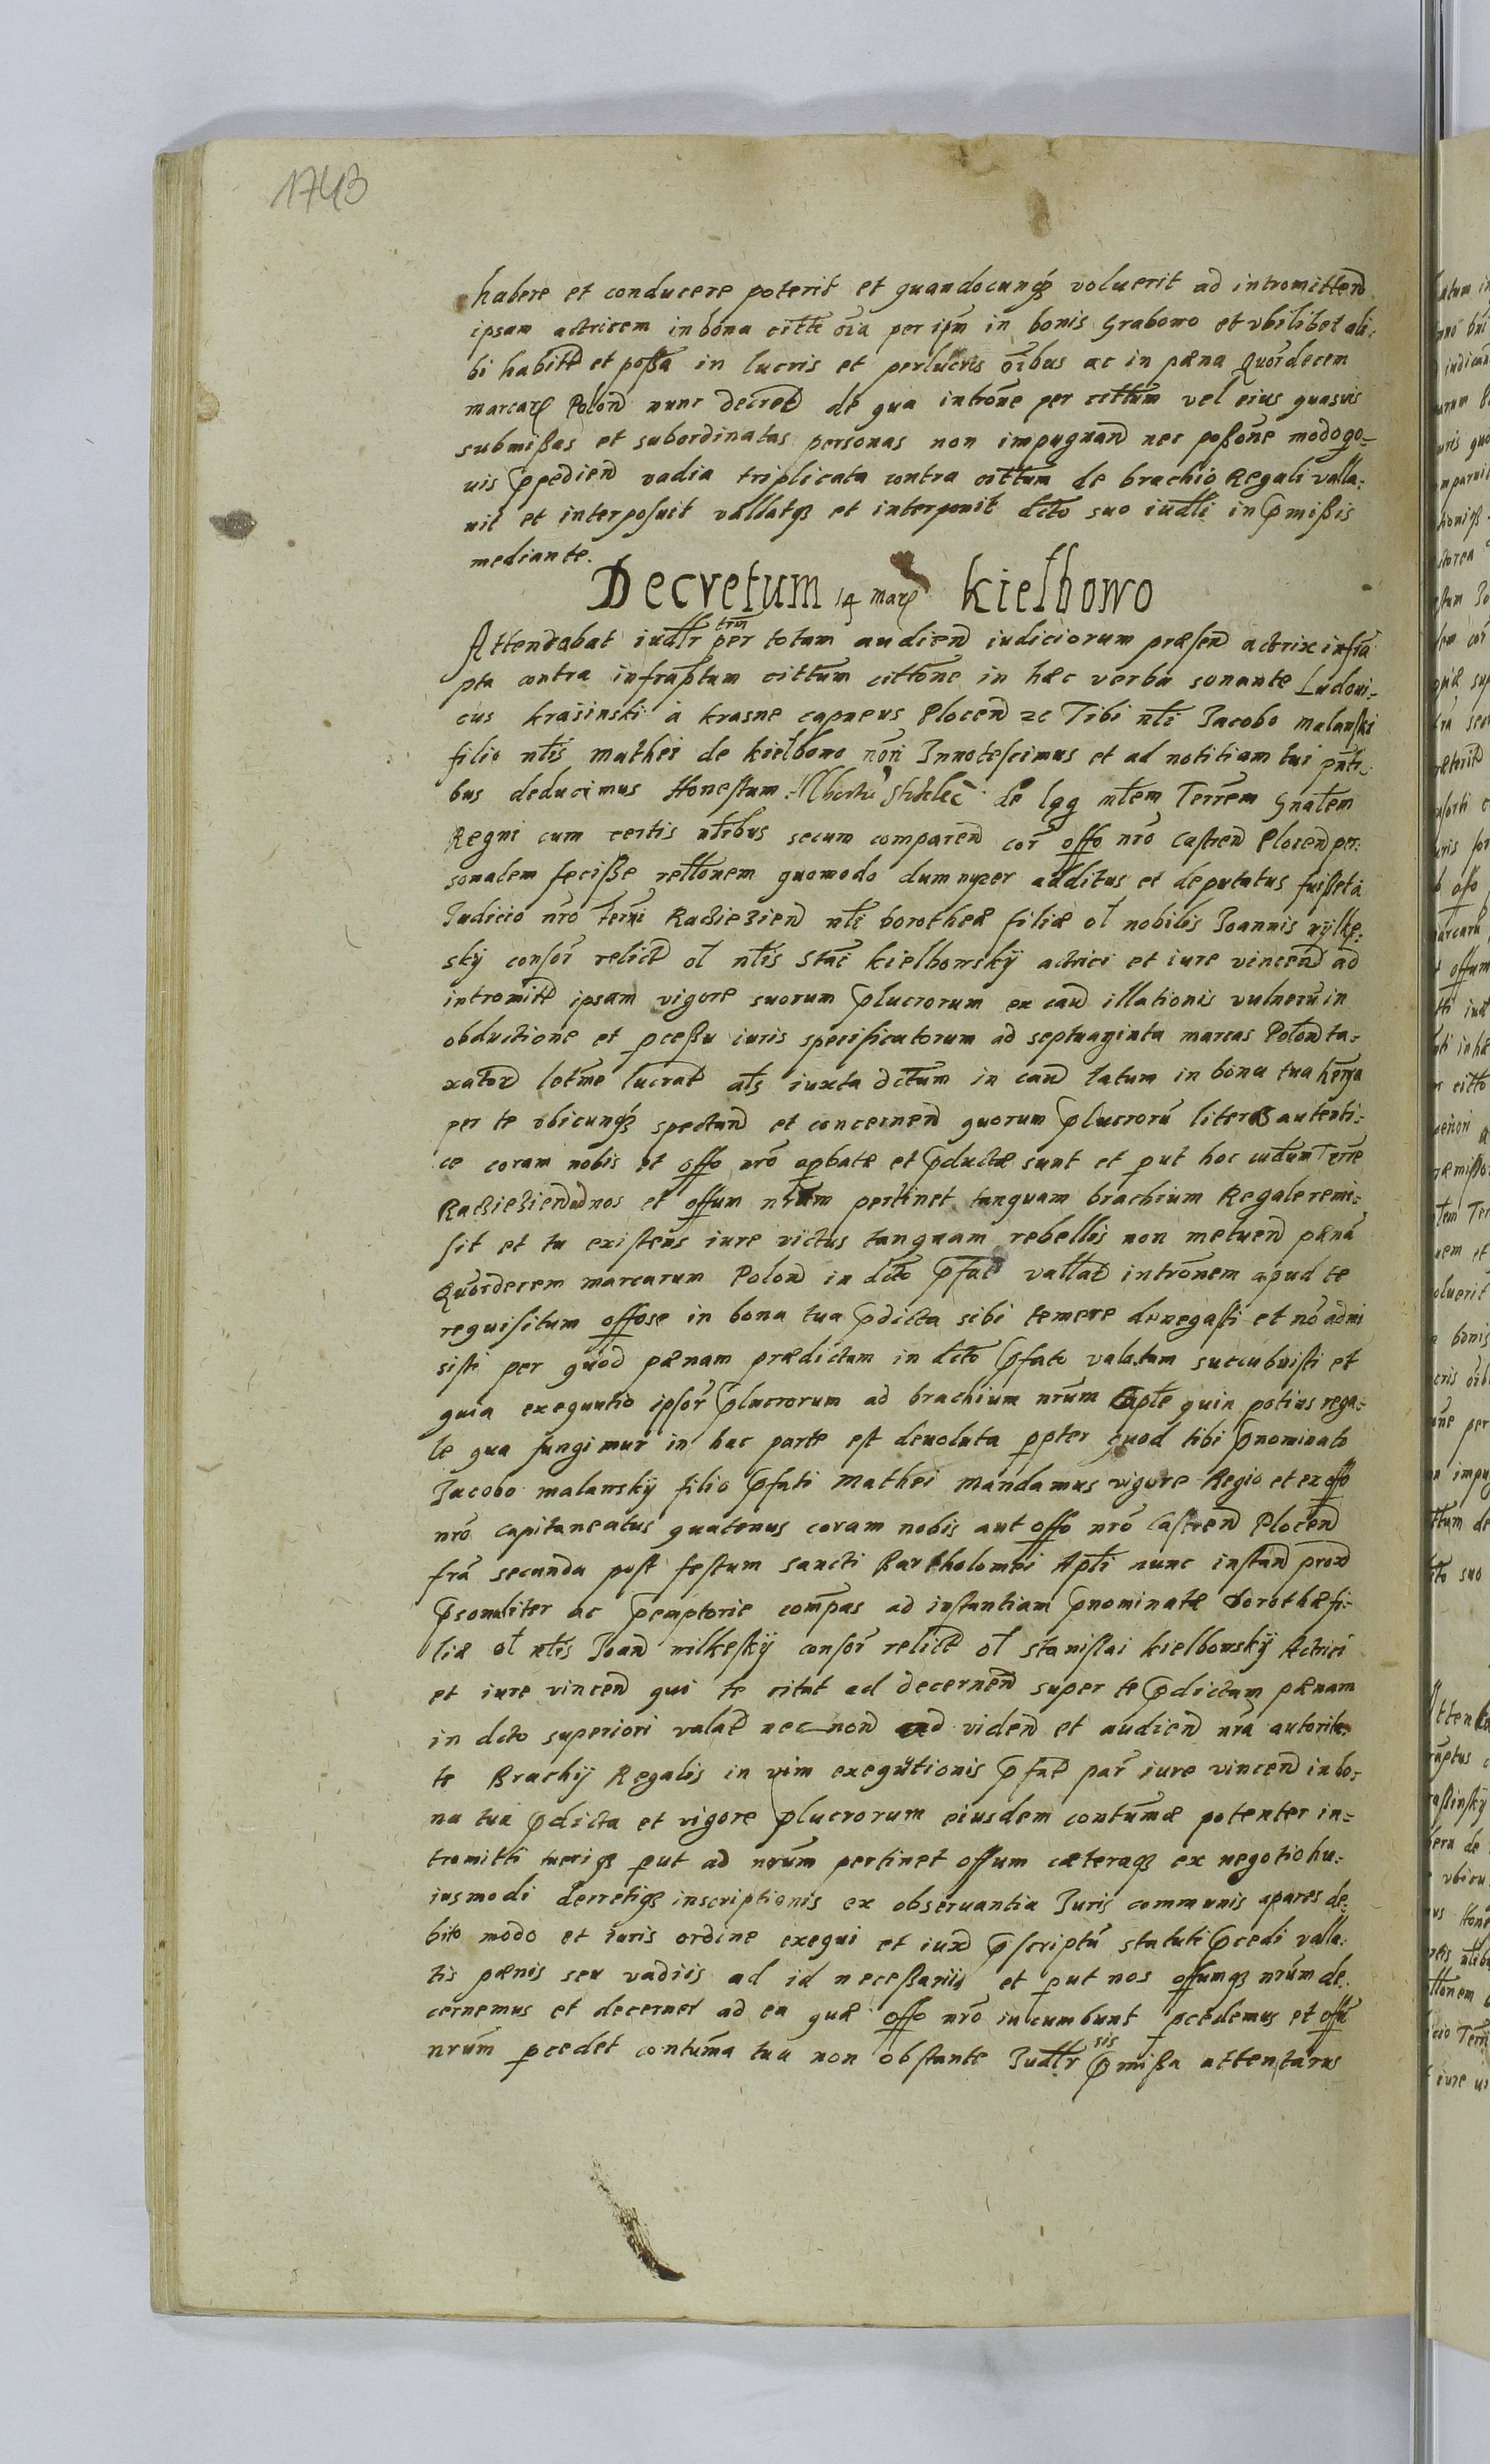 1743
habere et conducere poterit et quandocunq3 voluerit ad intromittend
ipsam actricem in bona citti oia per ipm in bonis Grabowo et vbilibet ali-
bi habitt et possa in lucris et perlucris oibus ac in pæna Quordecem
marcar Polon nunc decret de qua introne per cittum vel eius quasuis
submissas et subordinatas personas non impugnand nec possone modo qo-
uis ppediend vadia triplicata contra cittum de brachio Regali valla-
uit et interposuit vallatq3 et interponit dcto suo iudlli in pmissis
mediante.
Decretum 14 mar Kielbowo
Attentabat iudlr trm per totam audien iudiciorum præsen actrix infra
pta contra infraptum cittum cittone in hæc verba sonante Ludoui-
cus krasinski à krasne capneus Plocen 2c Tibi nli Jacobo malanski
filio nlis mathei de kielbowo nori Innotescimus et ad notitiam tui pnti-
bus deducimus Honestum de lqq nlem Terrem Gnalem
Regni cum certis nlibus secum comparen cor offo nro Castren Plocen per-
sonalem fecisse rellonem quomodo dum nuper additus et deputatus fuisset à
Judicio nro Terri Raciezien nli dorotheæ filiæ ol nobilis Joannis
sky consor relict ol nlis Stai kielbowsky actrici et iure vincen ad
intromitt ipsam vigore suorum plucrorum ex cau illationis vulneru in
obductione et pcessu iuris specificatorum ad septuaginta marcas Polon ta-
xator lucrat als iuxta dctum in cau latum in bona tua
per te vbicunq3 spectan et concernen quorum plucroru literæ autenti-
ce coram nobis et offo nro apbatæ et pductæ sunt et put hoc iudum Terre
Raciezien ad nos et offum nrum pertinet tanquam brachium Regale remi-
sit et tu existens iure victus tanquam rebellis non metuen pæna
Quordecem marcarum Polon in dcto pfat vallat intronem apud te
requisitum offose in bona tua pdicta sibi temere denegasti et no admi
sisti per quod pænam prædictam in dcto pfato valatam succubuisti et
quia exequutio ipsor plucrorum ad brachium nrum Caple quin potius rega-
le qua fungimur in hac parte est deuoluta ppter quod tibi pnominato
Jacobo malansky filio pfati Mathei Mandamus vigore Regio et ex offo
nro capitaneatus quatenus coram nobis aut offo nro Castren Plocen
fra secunda post festum sancti Bartholomei Apli nunc instan prox
psonaliter ac pemptorie compas ad instantiam pnominatæ dorothæ fi-
liæ ol nlis Joan wilkesky consor relict ol stanislai kielbowsky Actrici
et iure vincen qui te citat ad decernen super te pdictam pænam
in dcto superiori valat nec non ad viden et audien nra autorita-
te Brachij Regalis in vim exequutionis pfat par iure vincen in bo-
na tua pdicta et vigore plucrorum eiusdem contumæ potenter in-
tromitti tueriq3 put ad nrum pertinet offum cæteraq3 ex negotio hu-
iusmodi decretiq3 inscriptionis ex obseruantia Juris communis apares de-
bito modo et iuris ordine exequi et iux pscriptu statuti pcedi valla-
tis pænis seu vadiis ad id necessariis et put nos offumq3 nrum de-
cernemus et decernet ad ea quæ offo nro incumbunt pcedemus et offu
nrum pcedet contuma tua non obstante Judlr sis pmissa attentarus